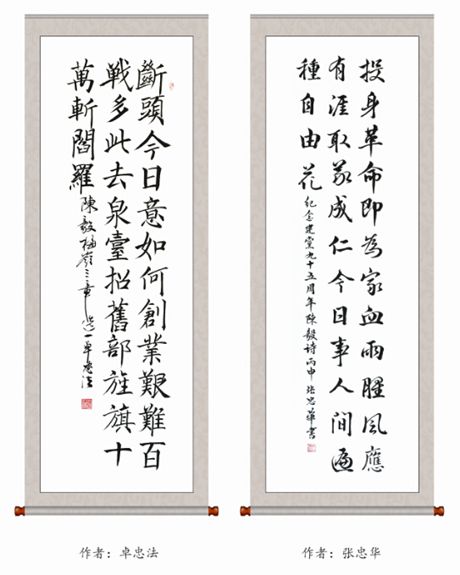 斷頭今日意如何創業艱難百
戰多此去泉臺招舊部旌旗十
萬斬閻羅
陳毅梅嶺三章選一卓忠法
作者：卓忠法
投身革命即為家血雨腥風應
有涯取義成仁今日事人間遍
種自由花
紀念建黨九十五周年陳毅诗丙申張忠華書
作者：张忠华